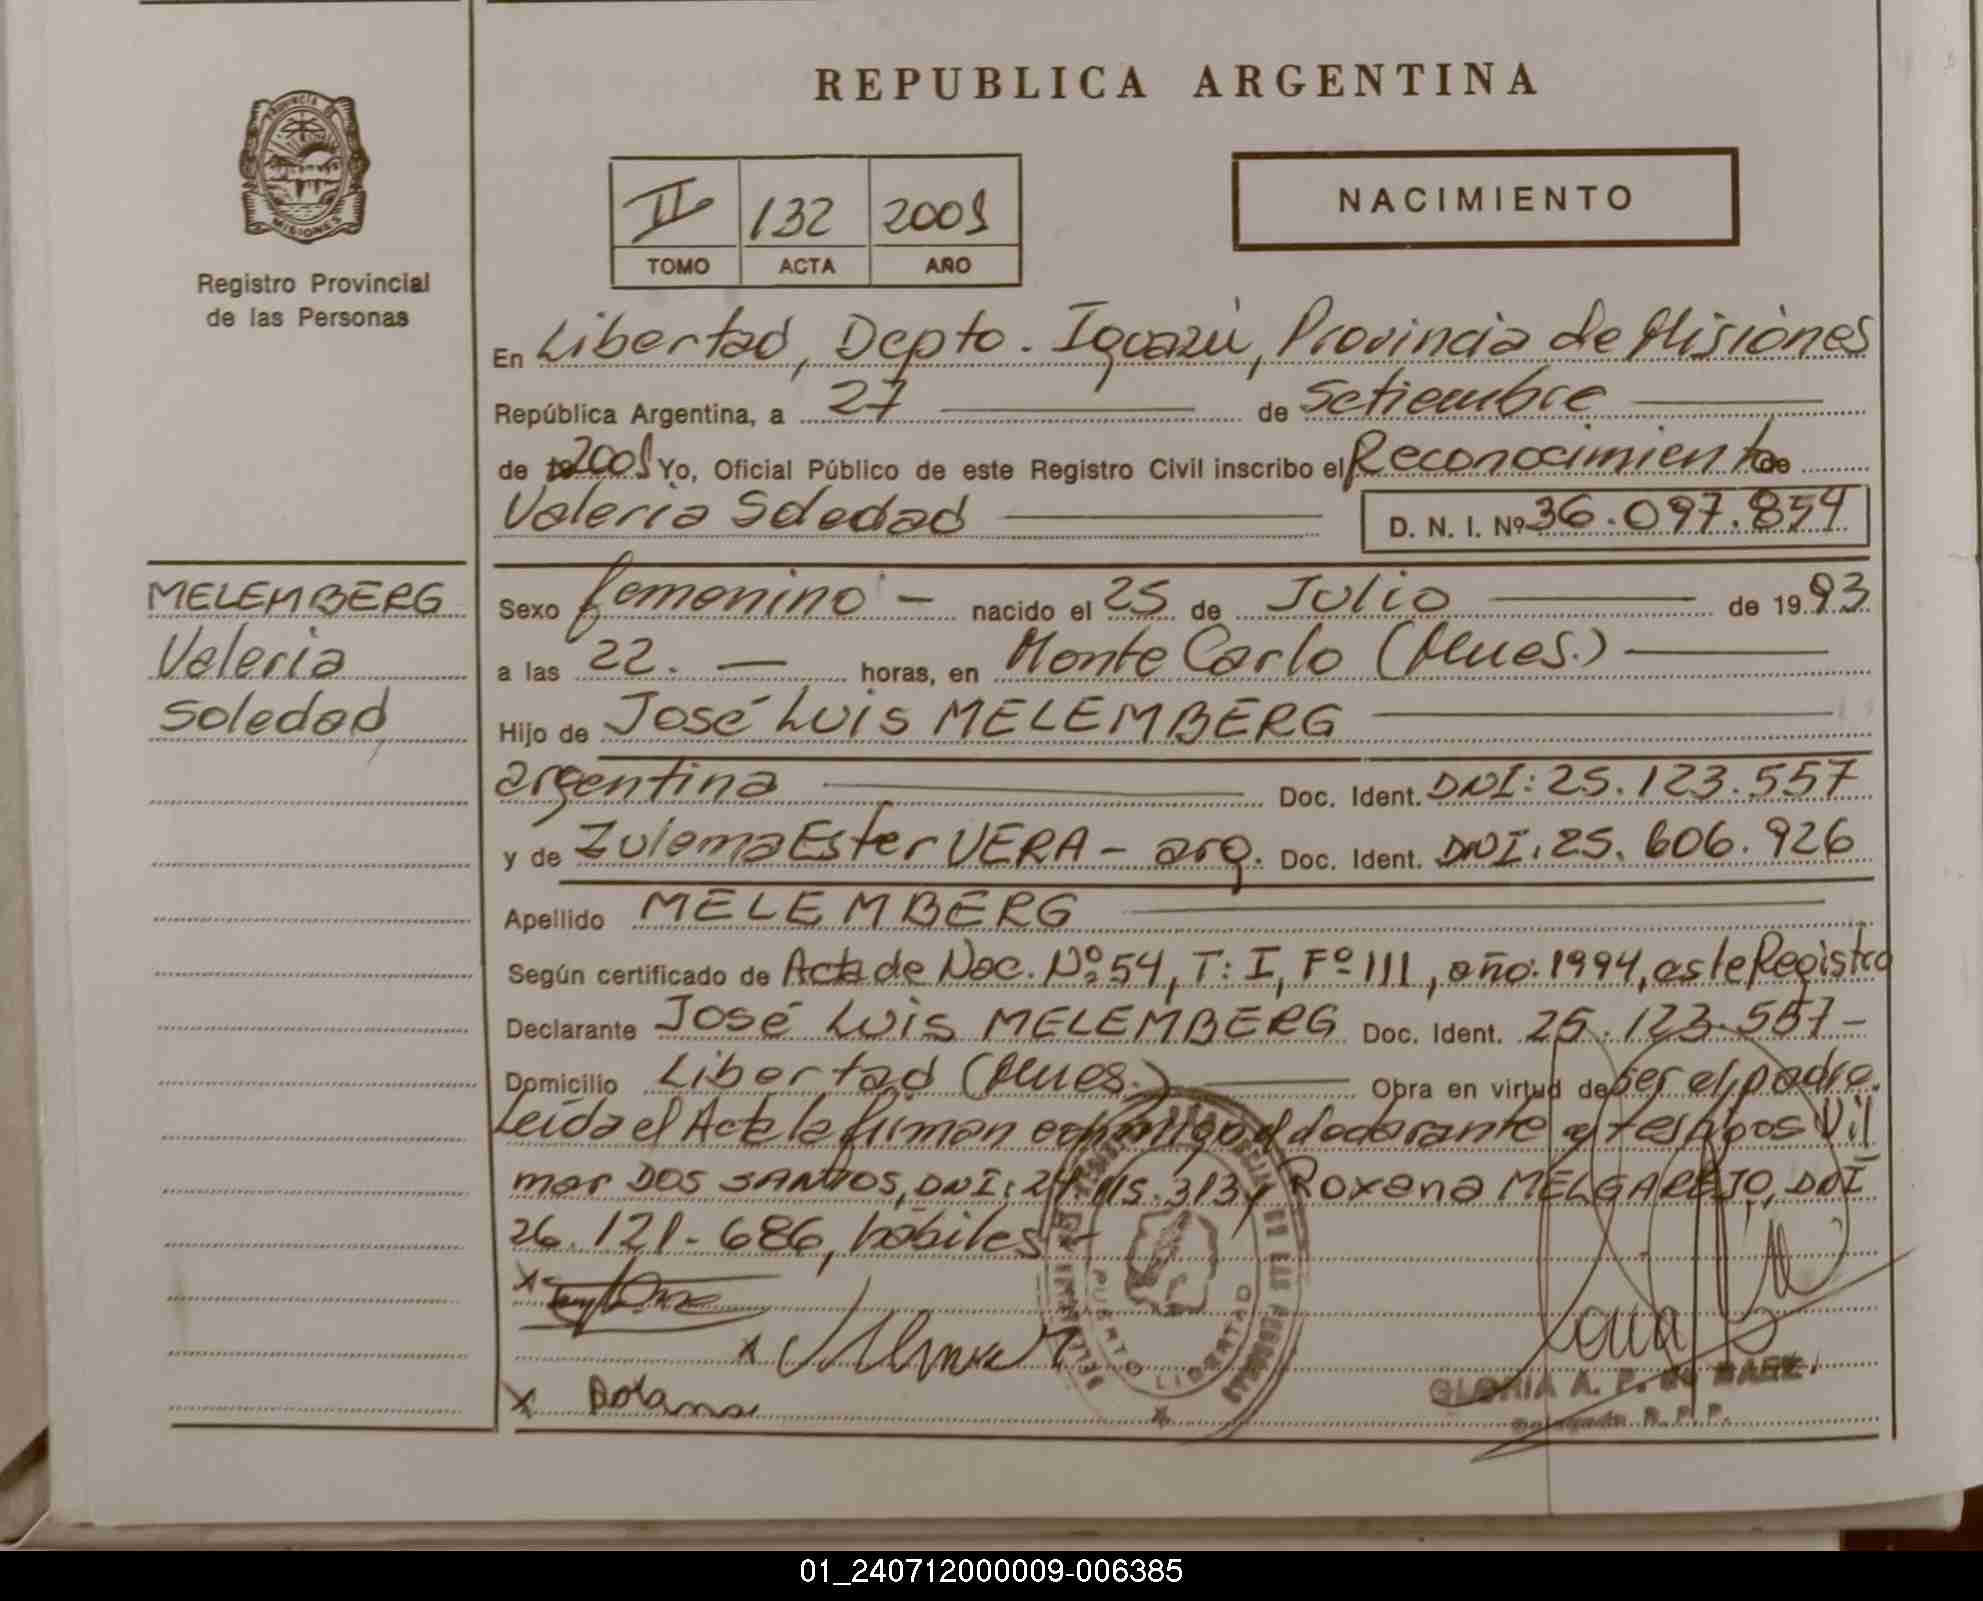 REPUBLICA ARGENTINA
PROVINCIA DE MISIONES
NACIMIENTO
II 132 2001
TOMO ACTA AÑO
Registro Provincial
de las Personas
En Libertad, Depto. Iguazú, Provincia de Misiones
República Argentina, a 27 de Setiembre
de 2001 Yo, Oficial Público de este Registro Civil inscribo el Reconocimiento de
Valeria Soledad D. N. I. Nº 36.097.854
MELEMBERG
Valeria
Soledad
Sexo femenino - nacido el 25 de Julio de 1993
a las 22. — horas, en Monte Carlo (Mnes.)
Hijo de José Luis MELEMBERG
argentina Doc. Ident. DNI: 25.123.557
y de Zulema Ester VERA - arg. Doc. Ident. DNI: 25.606.926
Apellido MELEMBERG
Según certificado de Acta de Nac. Nº 54, T: I, Fº 111, año: 1994, este Registro
Declarante José Luis MELEMBERG Doc. Ident. 25.123.557-
Domicilio Libertad (Mnes.) Obra en virtud de ser el padre.
Leída el Acta la firman conmigo el declarante y testigos Vil
mar DOS SANTOS, DNI: 24.115.313 y Roxana MELGAREJO, DNI
26.121.686, hábiles-
PUERTO LIBERTAD
GLORIA A. P. de BAEZ
R. P. P.
01_240712000009-006385